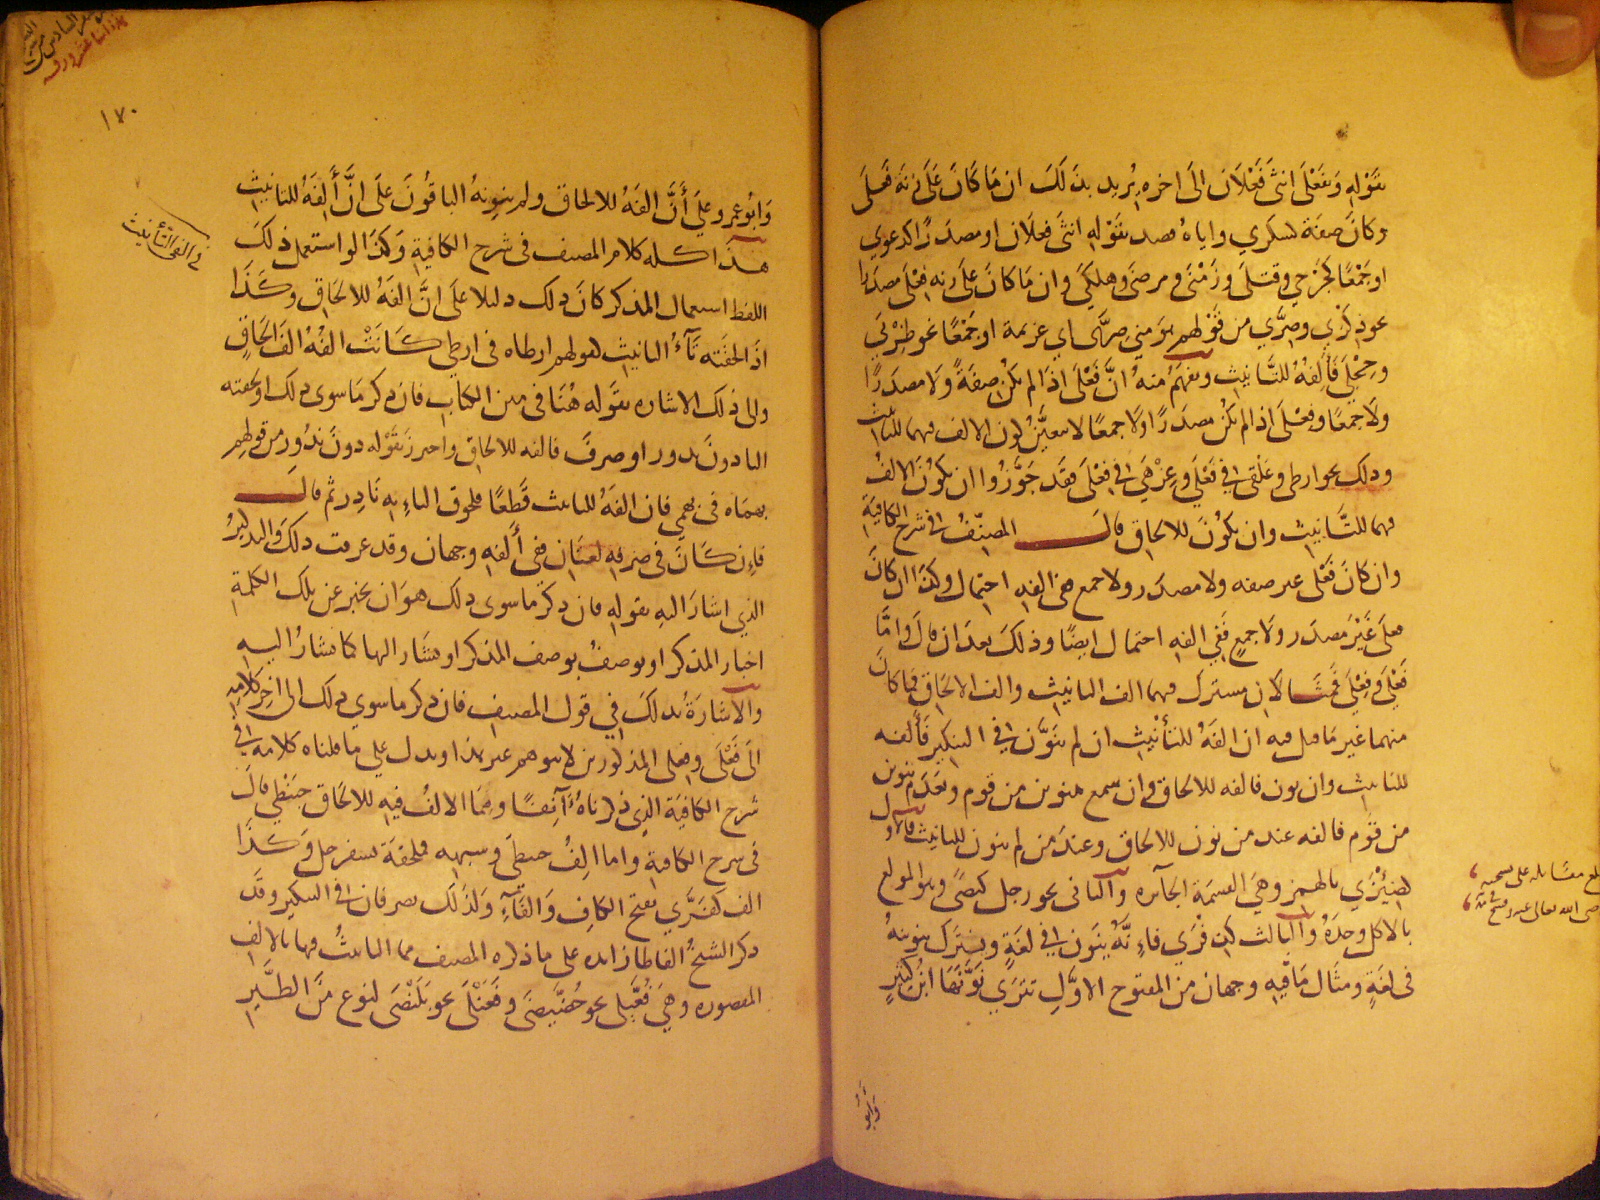 بقوله وبفعلى انثى فعلان الى اخره يريد بذلك ان ما كان على زنة فعلى
وكان صفة لسكرى واياه قصد بقوله انثى فعلان او مصدرا كدعوى
او جمعا كجرحى وقتلى وزمنى ومرضى وهلكى وان ما كان على زنة فعلى مصدرا
نحو ذكرى وصرى من قولهم هو مني صرى اي عزيمة او جمعا نحو ظربى
وحجلى فألفه للتانيث ويفهم منه ان فعلى اذا لم يكن صفة ولا مصدرا
ولا جمعا وفعلى اذا لم يكن مصدرا ولا جمعا لا يتعين كون الالف فيهما للتانيث
وذلك نحو ارطى وعلقى في فعلى وعزهى في فعلى فقد جوزوا ان يكون الالف
فيهما للتانيث وان يكون للالحاق قال المصنف في شرح الكافية
وان كان فعلى غير صفة ولا مصدر ولا جمع ففي الفه احتمال وكذا ان كان
فعلى غير مصدر ولا جمع ففي الفه احتمال ايضا وذلك بعد ان قال واما
فعلى وفعلى فمثالان مشترك فيهما الف التانيث والف الالحاق فما كان
منهما غير ما قيل فيه ان الفه للتأنيث ان لم ينون في التنكير فألفه
للتانيث وان نون فالفه للالحاق وان سمع منون من قوم وبعدم تنوين
من قوم فالفه عند من نون للالحاق وعند من لم ينون للتانيث فالاول
ضئزى بالهمز وهي القسمة الجائرة والثاني نحو رجل كيصى وهو المولع
بالاكل وحده والثالث كذفرى فانه ينون في لغة ويترك تنوينه
في لغة ومثال ما فيه وجهان من المفتوح الاول تترى نونها ابن كثير
بلغ مقابلة على نسخة
رضي الله تعالى عنه
وابو
١٧٠
وابو عمرو على أن الفه للالحاق ولم ينونه الباقون على ان ألفه للتانيث
هذا كله كلام المصنف في شرح الكافية وكذا لو استعمل ذلك
اللفظ استعمال المذكر كان ذلك دليلا على ان الفه للالحاق وكذا
اذا لحقته تاء التانيث لقولهم ارطاه في ارطى كانت الفه الف الحاق
والى ذلك الاشارة بقوله هنا في متن الكتاب فان ذكر ما سوى ذلك او لحقته
التا دون ندور او صرف فالفه للالحاق واحترز بقوله دون ندور من قولهم
بهماه في بهمى فان الفه للتانيث قطعا فلحوق التاء به نادر ثم قال
فان كان في صرفه لغتان ففي ألفه وجهان وقد عرفت ذلك والتذكير
الذي اشار اليه بقوله فان ذكر ما سوى ذلك هو ان يخبر عن تلك الكلمة
اخبار المذكر او يوصف بوصف المذكر او يشار اليها كما يشار اليه
والاشارة بذلك في قول المصنف فان ذكر ما سوى ذلك الى اخر كلامه
الى فعلى وفعلى المذكورين لا يتوهم غير هذا ويدل على ما قلناه كلامه في
شرح الكافية الذي ذكرناه آنفا ومما الالف فيه للالحاق حبنطى قال
في شرح الكافية واما الف حبنطى وشبهه فملحقة بسفرجل وكذا
الف كفرى بفتح الكاف والفاء ولذلك يصرفان في التنكير وقد
ذكر الشيخ الفاظا زايدة على ما ذكره المصنف مما التانيث فيها بالالف
المقصورة وهي فعيلى نحو خضيصى وفعنلى نحو بلنصى لنوع من الطير
في الفي التأنيث